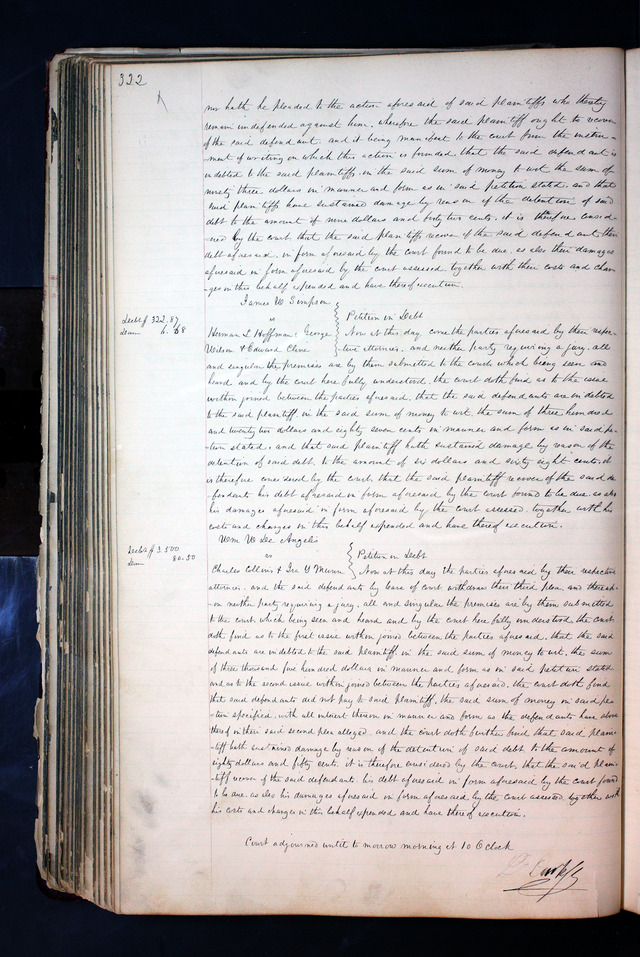 322
nor hath he pleaded to the action aforesaid of said plaintiffs who thereby
remain undefended against him. wherefore the said plaintiff ought to recover
of the said defendant. and it being manifest to the court from the instru-
ment of writing on which this action is founded, that the said defendant is
indebted to the said plaintiffs in the said sum of money to wit the sum of
ninety three dollars in manner and form as in said petition stated. and that
said plaintiffs have sustained damage by reason of the detention of said
debt to the amount of nine dollars and forty two cents. it is therefore consid-
ered by the court that the said plaintiffs recover of the said defendant their
debt aforesaid. in form aforesaid by the court found to be due. as also their damages
aforesaid in form aforesaid by the court assessed together with their costs and char-
ges in this behalf expended and have thereof execution.
James W Simpson
vs
Petition in Debt
Debt $ 322.87
Dam 6.68
Herman L Hoffman George
Now at this day come the parties aforesaid by their respec-
Wilson & Edward Cline
tive attornies. and neither party requiring a jury. all
and singular the premises are by them submitted to the court. which being seen and
heard and by the court here fully understood. the court doth find as to the issue
within joined between the parties aforesaid. that the said defendants are indebted
to the said plaintiff in the said sum of money to wit. the sum of three hundred
and twenty two dollars and eighty seven cents in manner and form as in said pe-
tition stated. and that said plaintiff hath sustained damage by reason of the
detention of said debt. to the amount of six dollars and sixty eight cents. it
is therefore considered by the court that the said plaintiff recover of the said de
fendants his debt aforesaid in form aforesaid by the court found to be due. as also
his damages aforesaid in form aforesaid by the court assessed. together with his
costs and charges in this behalf expended and have thereof execution.
Wm W Dec Angelis
vs
Petition in Debt
Debt $ 3.500
Dam 80.50
Charles Collins & Ira Y Munn
Now at this day the parties aforesaid by their respective
attornies. and the said defendants by leave of court withdraw their third plea. and thereup-
on neither party requiring a jury. all and singular the premises are by them submitted
to the court. which being seen and heard and by the court here fully understood the court
doth find as to the first issue within joined between the parties aforesaid, that the said
defendants are indebted to the said plaintiff in the said sum of money to wit. the sum
of three thousand five hundred dollars in manner and form as in said petition stated
and as to the second issue within joined between the parties aforesaid. the court doth find
that said defendants did not pay to said plaintiff, the said sum of money in said pe-
tition specified. with all interest thereon in manner and form as the defendants have above
thereof in their said second plea alleged. and the court doth further find that said plain-
tiff hath sustained damage by reason of the detention of said debt to the amount of
eighty dollars and fifty cents. it is therefore considered by the court, that the said plain-
tiff recover of the said defendants. his debt aforesaid in form aforesaid by the court found
to be due. as also his damages aforesaid in form aforesaid by the court assessed. together with
his costs and charges in this behalf expended and have thereof execution.
Court adjourned until to morrow morning at 10 O'clock